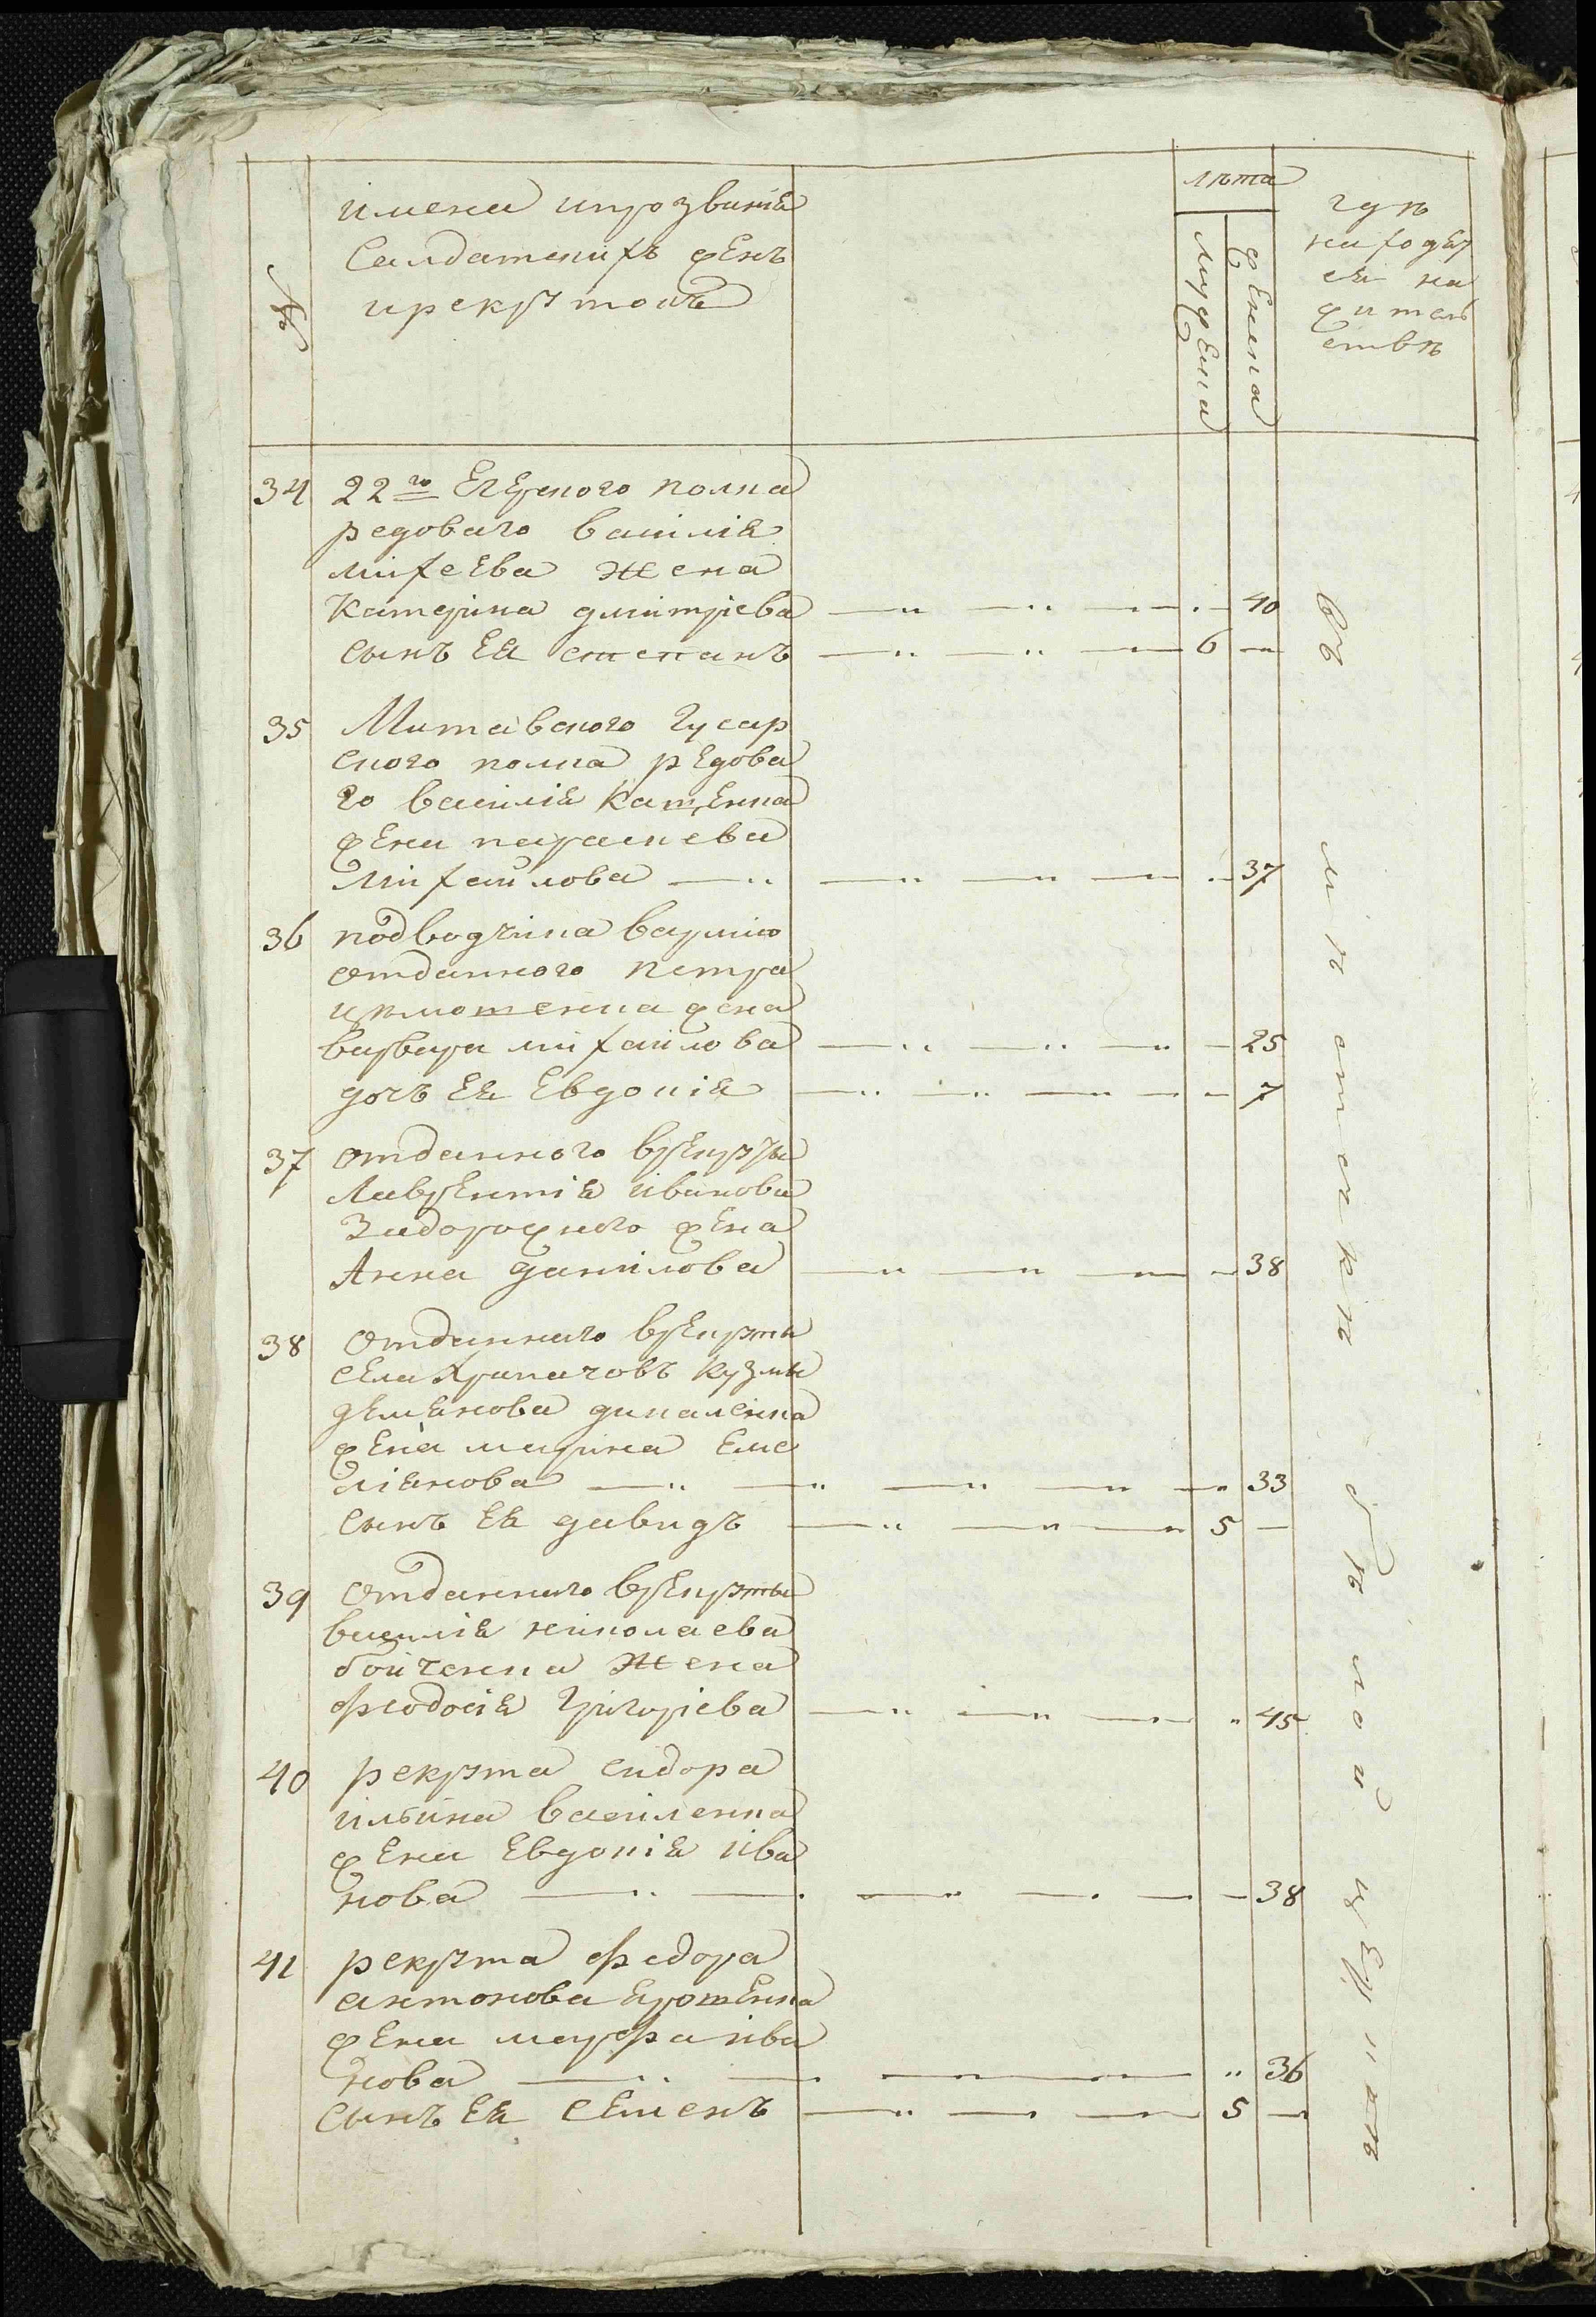 №
имена ипрозвания
Салдатскихъ женъ
ирекрутовъ
лѣта
мужеска
женска
гдѣ
находят
ся на
жител
ствѣ
34 22го Егерского полка
редоваго василія
михеева жена
Катерина дмитріева 40
сынъ Ея степанъ 6
35 Митавского Гусар
ского полка рЕдова
го василія
жена параскева
михайлова 37
36 подводчика вармию
отданного петра
жена
варвара михайлова 25
дочъ Ея Евдокія 7
37 отданного врЕкруты
лаврЕнтія иванова
Задорожного жена
Анна данилова 38
38 отданнаго врЕкруты
сЕла Хрипачовъ Кузмы
дЕмянова
жЕна марина Еме
ліянова 33
сынъ Ея давидъ 5
39 отданнаго врЕкруты
василія николаева
бойченка жена
феодосія Григоріева 45
40 рекрута сидора
ильина василенка
жЕна Евдокія ива
нова 38
41 рекрута федора
антонова ЕрошЕнка
жЕна марфа ива
нова 36
сынъ Ея сЕменъ 5
въ мѣстечкѣ